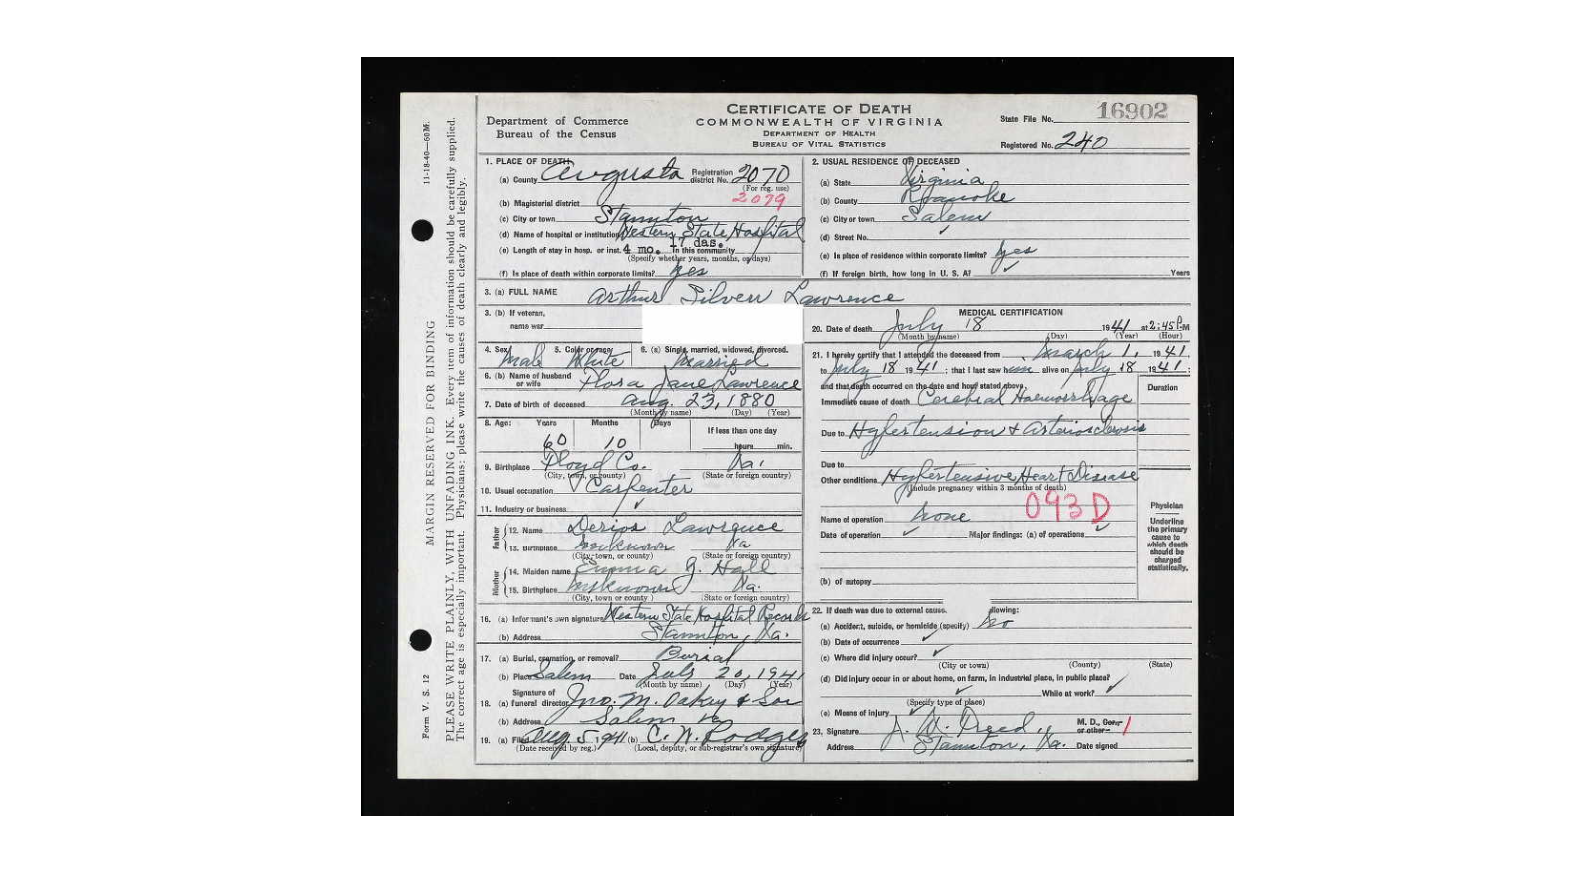 CERTIFICATE OF DEATH
16902
Department of Commerce
COMMONWEALTH OF VIRGINIA
State File No.
Bureau of the Census
DEPARTMENT OF HEALTH
BUREAU OF VITAL STATISTICS
Registered No. 240
1. PLACE OF DEATH
(a) County Augusta Registration district No. 2070
(For reg. use)
2079
(b) Magisterial district
(c) City or town Staunton
(d) Name of hospital or institution Western State Hospital
(e) Length of stay in hosp. or inst. 4 mo. 17 das. In this community
(Specify whether years, months, or days)
(f) Is place of death within corporate limits? yes
2. USUAL RESIDENCE OF DECEASED
(a) State Virginia
(b) County Roanoke
(c) City or town Salem
(d) Street No. ✓
(e) Is place of residence within corporate limits? yes
(f) If foreign birth, how long in U. S. A.? ✓ Years
3. (a) FULL NAME Arthur Lawrence
3. (b) If veteran,
name war
4. Sex Male 5. Color or race White 6. (a) Single, married, widowed, divorced. Married
6. (b) Name of husband or wife Flora Jane Lawrence
7. Date of birth of deceased Aug. 23, 1880
(Month by name) (Day) (Year)
8. Age: Years Months Days If less than one day
60 10 hours min.
9. Birthplace Floyd Co. Va.
(City, town, or county) (State or foreign country)
10. Usual occupation Carpenter
11. Industry or business ✓
Father
12. Name Lawrence
13. Birthplace unknown Va
(City, town, or county) (State or foreign country)
Mother
14. Maiden name Emma J. Hall
15. Birthplace unknown Va.
(City, town or county) (State or foreign country)
16. (a) Informant's own signature Western State Hospital Records
(b) Address Staunton, Va.
17. (a) Burial, cremation, or removal? Burial
(b) Place Salem Date July 20, 1941
(Month by name) (Day) (Year)
Signature of
18. (a) funeral director Jno. M. Oakey & Son
(b) Address Salem Va
19. (a) Filed Aug. 5 1941 (b) C. W. Rodgers
(Date received by reg.) (Local, deputy, or sub-registrar's own signature)
MEDICAL CERTIFICATION
20. Date of death July 18 1941 at 2:45 P.M
(Month by name) (Day) (Year) (Hour)
21. I hereby certify that I attended the deceased from March 1, 1941
to July 18 1941; that I last saw him alive on July 18 1941;
and that death occurred on the date and hour stated above. Duration
Immediate cause of death Cerebral Haemorrhage
Due to Hypertension & Arteriosclerosis
Due to
Other conditions Hypertensive Heart Disease
(Include pregnancy within 3 months of death)
093D
Name of operation none
Date of operation ✓ Major findings: (a) of operations ✓
(b) of autopsy
Physician
Underline
the primary
cause to
which death
should be
charged
statistically.
22. If death was due to external cause, llowing:
(a) Accident, suicide, or homicide (specify) no
(b) Date of occurrence ✓
(c) Where did injury occur? ✓
(City or town) (County) (State)
(d) Did injury occur in or about home, on farm, in industrial place, in public place? ✓
✓ While at work? ✓
(Specify type of place)
(e) Means of injury ✓
23. Signature M. D., or other
Address Staunton, Va. Date signed
Form V. S. 12
11-18-40—60M.
MARGIN RESERVED FOR BINDING
PLEASE WRITE PLAINLY, WITH UNFADING INK. Every item of information should be carefully supplied.
The correct age is especially important. Physicians: please write the causes of death clearly and legibly.